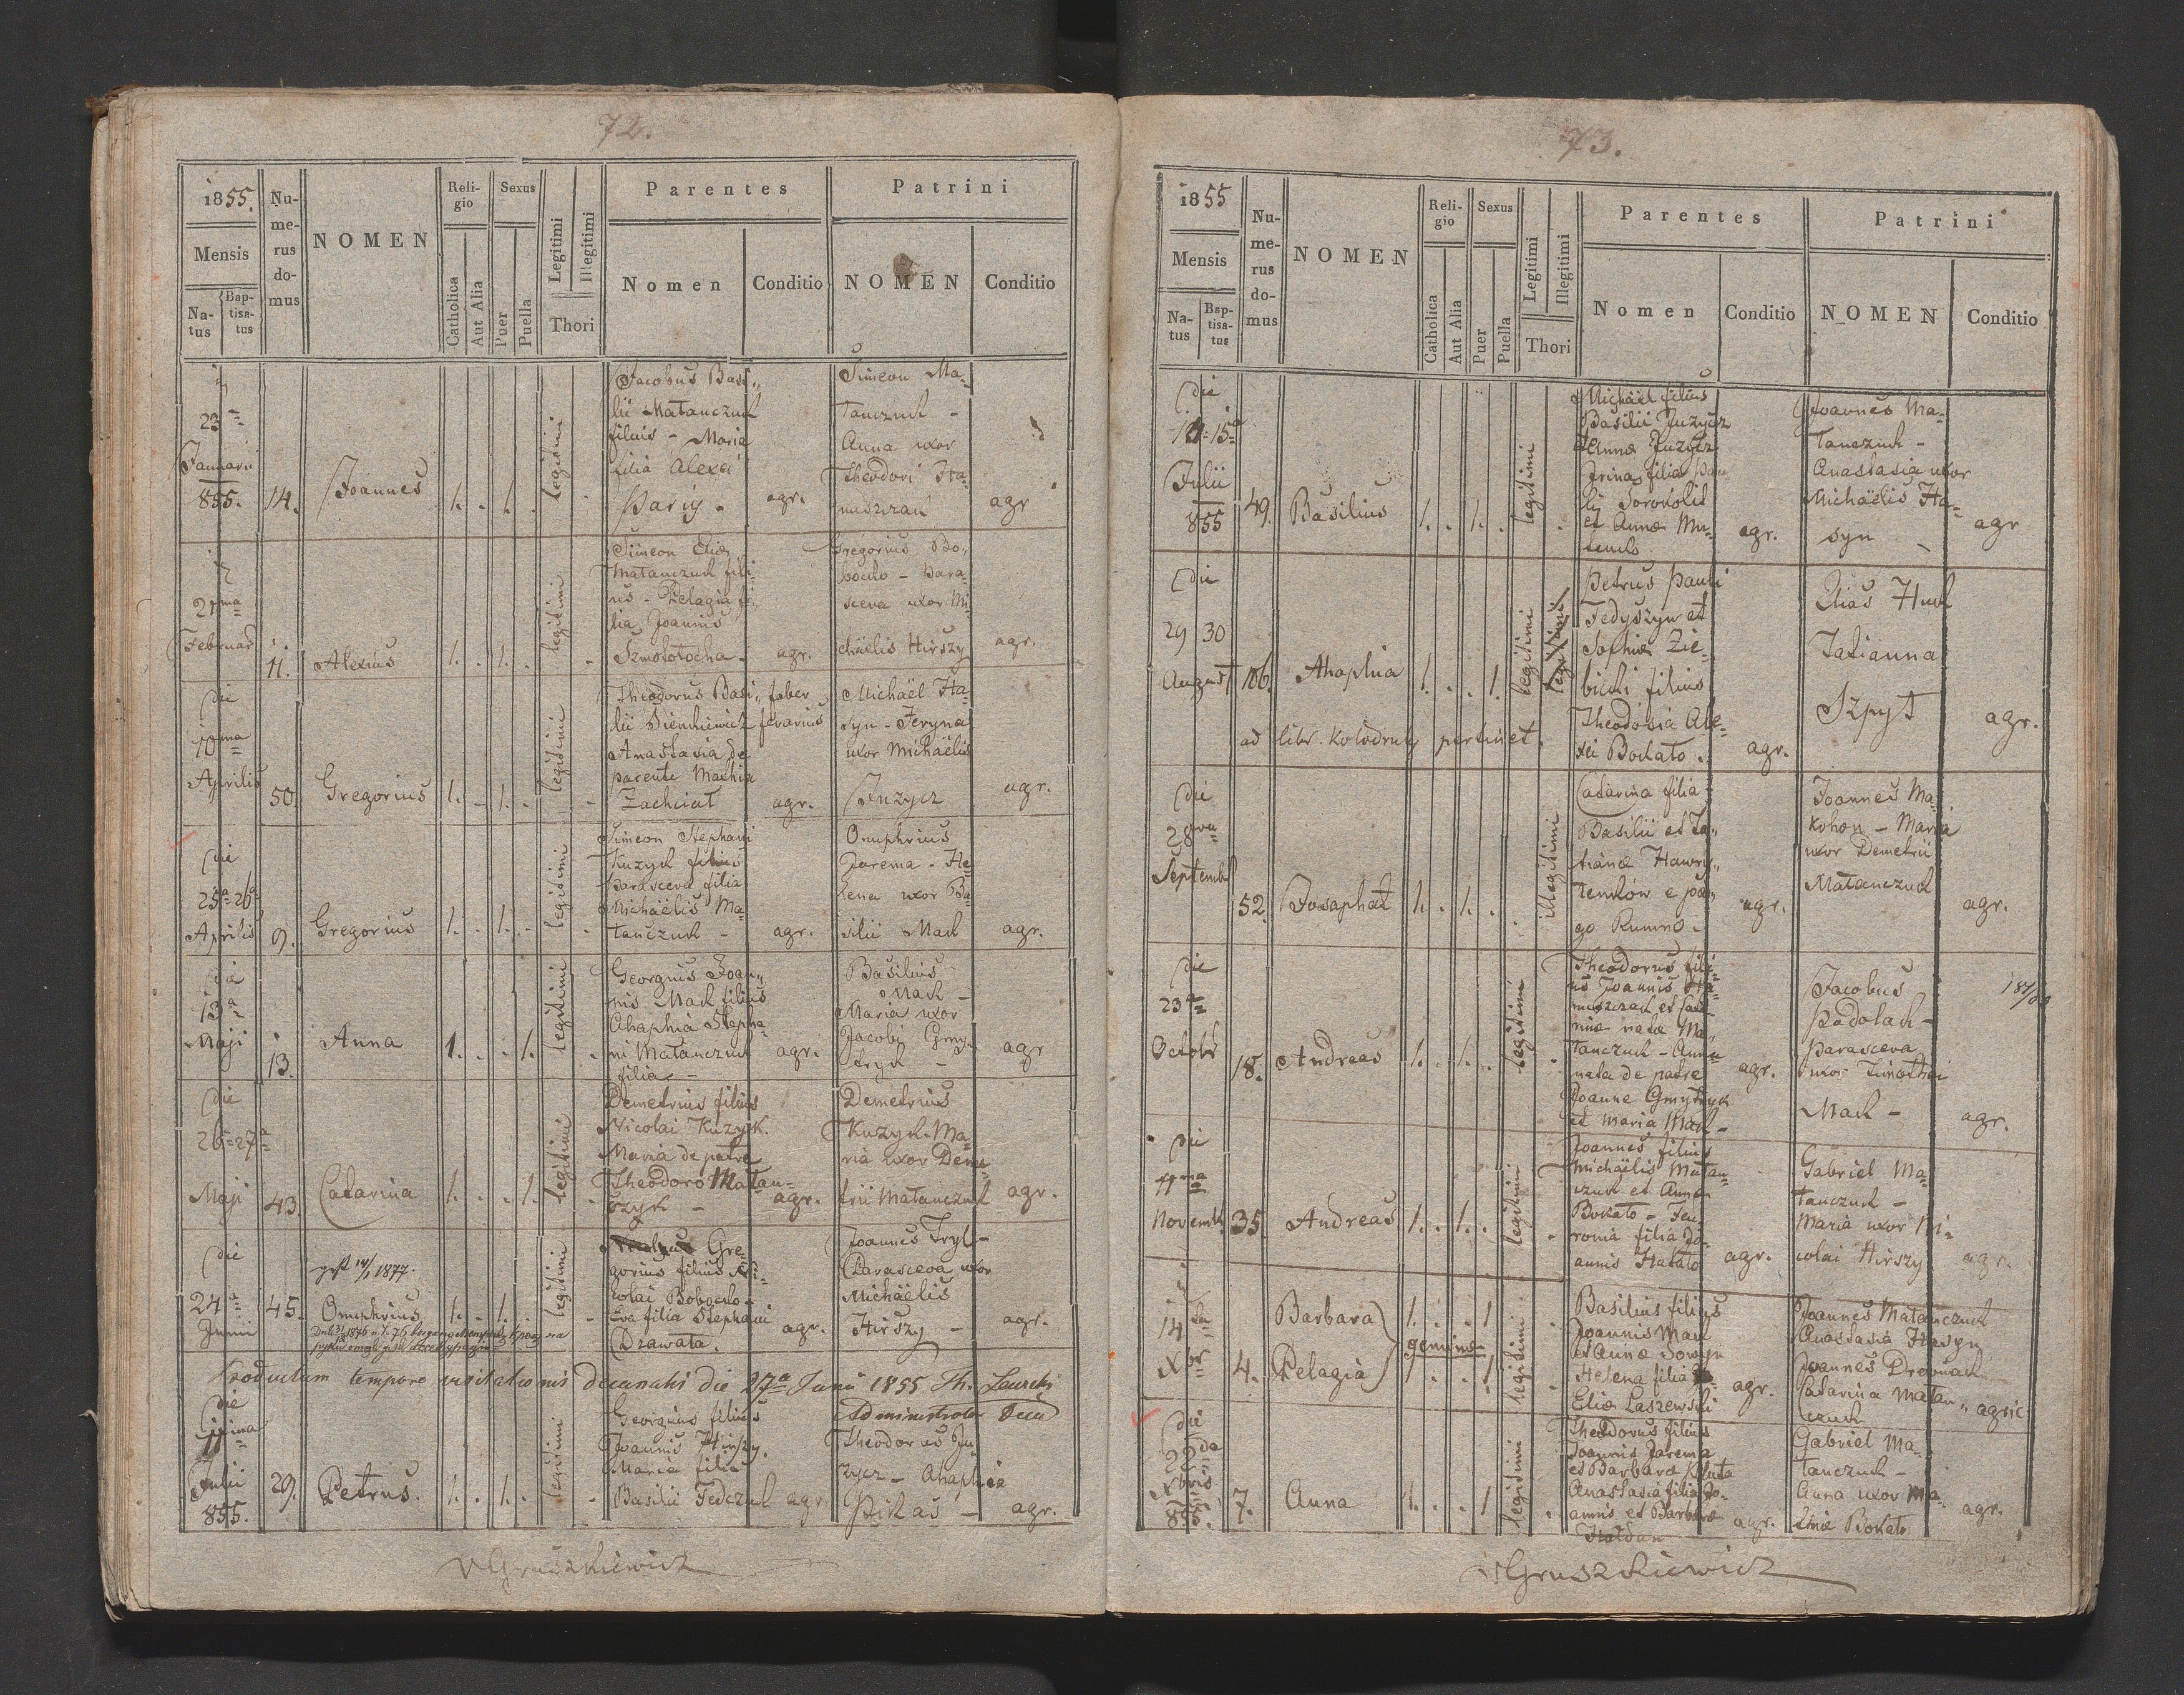 72.
1855.
Mensis
Na-
tus
Bap-
tisa-
tus
Nu-
me-
rus
do-
mus
NOMEN
Reli-
gio
Catholica
Aut Alia
Sexus
Puer
Puella
Legitimi
Illegitimi
Thori
Parentes
Nomen
Conditio
Patrini
NOMEN
Conditio
23
Januarii
855.
14.
Joannes
1. . 1. .
legitimi
Jacobus Basi„
lii Matanczuk
filius - Maria
filia Alexii
Paris -
agr.
Simeon Ma-
tanczuk -
Anna uxor
Theodori Ha-
nuszczak
agr
21ma
Februar
11.
Alexius
1. . 1. .
legitimi
Simeon Eliæ
Matanczuk fili-
us - Pelagia fi-
lia Joannis
Szmolocha -
agr.
Gregorius Bo-
bocko - Para-
sceva uxor Mi-
chäelis Hirszy
agr.
die
10ma
Aprilis
50.
Gregorius
1. - 1. .
legitimi
Theodorus Basi„
lii Sienkiewicz
Anastasia de
parente Mathia
Zachciat
faber
ferarius
agr.
Michäel Ha-
syn - Jeryna
uxor Michäelis
Juzycz
agr.
die
25a 26a
Aprilis
9.
Gregorius
1. . 1. .
legitimi
Simeon Stephani
Kuzyk filius
Parasceva filia
Michäelis Ma-
tanczuk -
agr.
Onuphrius
Jarema - He-
lena uxor Ba-
silii Mach
agr.
die
13a
Maji
13.
Anna
1. . . 1.
legitimi
Georgius Joan„
nis Mach filius
Ahaphia Stepha-
ni Matanczuk
filia -
agr.
Basilius
Mach -
Maria uxor
Jacobi Gmy-
tryk -
agr
die
26 27a
Maji
43.
Catarina
1. . . 1.
legitimi
Demetrius filius
Nicolai Kuzyk.
Maria de patre
Theodoro Matan-
czyk -
agr.
Demetrius
Kuzyk - Ma-
ria uxor Deme-
trii Matanczuk
agr.
die
24
Junii
45.
1877.
Onuphrius
1. - 1. .
legitimi
Gre-
gorius filius Ni-
colai Bobocko -
Eva filia Stephani
Drawata.
agr.
Joannes Tryl -
Parasceva uxor
Michäelis
Hirszy -
agr.
Productum tempore visitationis decanalis die 27a Junii 1855 Th. Laurecki
Administrator Deca
die
11ma
Julii
855.
29.
Petrus.
1. . 1. .
legitimi
Georgius filius
Joannis Hirszy.
Maria filia
Basilii Fedczuk
agr
Theodorus Ju-
zycz - Ahaphia
Pikas -
agr.
Gruszkiewicz
73.
1855
Mensis
Na-
tus
Bap-
tisa-
tus
Nu-
me-
rus
do-
mus
NOMEN
Reli-
gio
Catholica
Aut Alia
Sexus
Puer
Puella
Legitimi
Illegitimi
Thori
Parentes
Nomen
Conditio
Patrini
NOMEN
Conditio
die
14 15a
Julii
855
49.
Basilius
1. . 1. .
legitimi
Michäel filius
Basilii Juzycz
et Anna Juzycz
Irina filia Pau
li Sorokolit
et Annæ Mu-
agr.
Joannes Ma-
tanczuk -
Anastasia uxor
Michäelis Ha-
syn -
agr
die
29 30
August
106.
Ahaphia
1. . . 1.
legitimi
Petrus Pauli
Fedyszyn et
Sophiæ Zie-
bicki filius
Theodosia Ale-
xii Bokato.
agr.
Elias Huk
Tatianna
Szpyt
agr.
ad libr. Kolodruby pertinet.
die
28va
Septemb
52.
Josaphat
1. . 1. .
illegitimi
Catarina filia
Basilii et Ta„
tianæ Hawry„
lenków e pa„
go Rumno -
agr.
Joannes Ma-
kohon - Maria
uxor Demetrii
Matanczuk
agr.
die
23
Octobr
18.
Andreas
1. . 1. .
legitimi
Theodorus fili-
us Joannis Ha-
nuszczak et Cata-
rinæ natæ Ma-
tanczuk - Anna
nata de patre
Joanne Gmytryk
et Maria Mach -
agr.
Jacobus
Padolak -
Parasceva
uxor Timothei
Mach -
agr.
die
11ma
Novemb
35.
Andreas
1. . 1. .
legitimi
Joannes filius
Michäelis Matan-
czuk et Annæ
Bokato - Feu
ronia filia Jo-
annis Hakato
agr.
Gabriel Ma-
tanczuk -
Maria uxor Ni-
colai Hirszy
agr.
14ta
Xbr
4.
Barbara
Pelagia
geminæ
1. . . 1
1. . . 1
legitimi
legitimi
Basilius filius
Joannis Mach
et Annæ Sowyn
Helena filia
Eliæ Laszewski
agr.
Joannes Matanczuk
Anastasia Hasyn
Joannes Drozniak
Catarina Matan„
czuk
agric
die
22da
Xbris
855.
7.
Anna
1. . . 1
legitimi
Theodorus filius
Joannis Jarema
et Barbara Kaluta
Anastasia filia Jo-
annis et Barbaræ
Haldun
agr.
Gabriel Ma-
tanczuk -
Anna uxor Ma-
thiæ Bokato
agr.
Gruszkiewicz